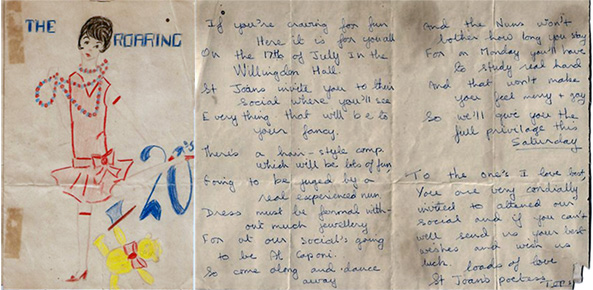 THE ROARING
20's
If you're craving for fun
Here it is for you all
On the 17th of July In the
Willingdon Hall.
St Joans invite you to their
social where you'll see
Everything that will be to
your fancy.
There's a hair-style comp
which will be lots of fun
Going to be juged by a
real experienced nun
Dress must be formal with-
out much jewellery
For at our social's going
to be Al Caponi.
So come along and dance
away
And the Nuns won't
bother how long you stay
For on Monday you'll have
to study real hard
And that won't make
you feel merry + gay
So we'll give you the
full privilage this
Saturday
To the one's I love best,
You are very cordially
invited to attened our
social and if you can't
well send us your best
wishes and wish us
luck loads of love
St Joans poetess